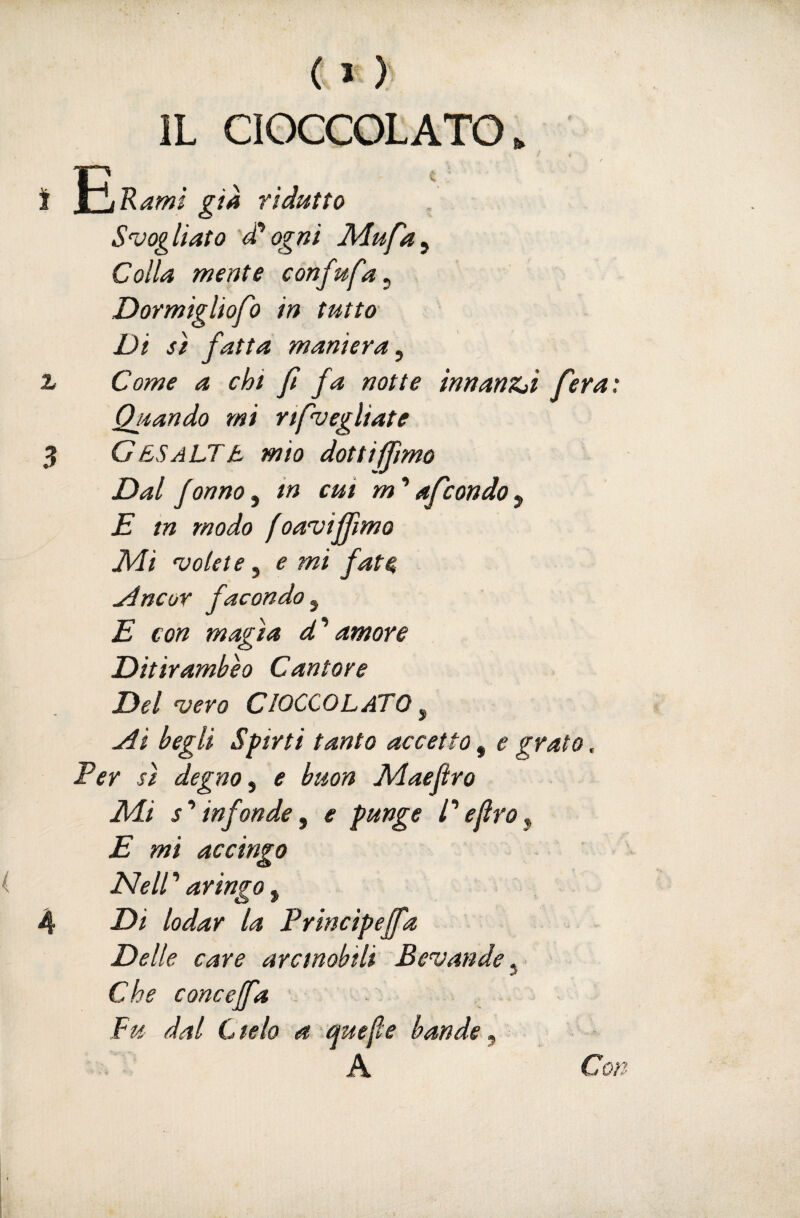 ( 1 )
IL CIOCCOLATO.
1 ERami già ridutto
Svogliato d'ogni Muſa,
Colla mente confuſa,
Dormiglioſo in tutto
Di sì fatta maniera,
2 Come a chi ſi fa notte innanzi ſera:
Quando mi riſvegliate
3 GESALTE mio dottiſſimo
Dal ſonno, in cui m'aſcondo,
E in modo ſoaviſſimo
Mi volete, e mi fate
Ancor facondo,
E con magìa d'amore
Ditirambèo Cantore
Del vero CIOCCOLATO,
Ai begli Spirti tanto accetto, e grato.
Per sì degno, e buon Maeſtro
Mi s'infonde, e punge l'eſtro,
E mi accingo
Nell'aringo,
4 Di lodar la Principeſſa
Delle care arcinobili Bevande,
Che conceſſa
Fu dal Cielo a queſte bande,
A Con